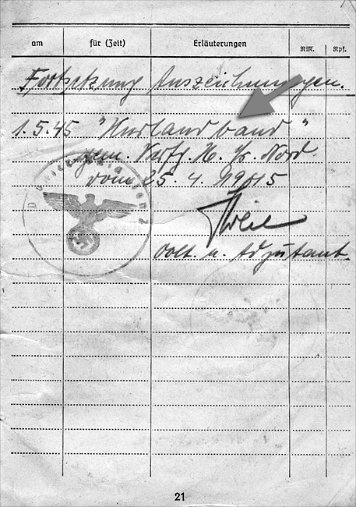 am für (Zeit) Erläuterungen RM. Rpf.
Fortsetzung Auszeichnungen.
1.5.45 "Kurlandband"
gem. Verfg. H. Gr. Nord.
vom 25. 4. 1945
Oblt. u. Adjutant.
21